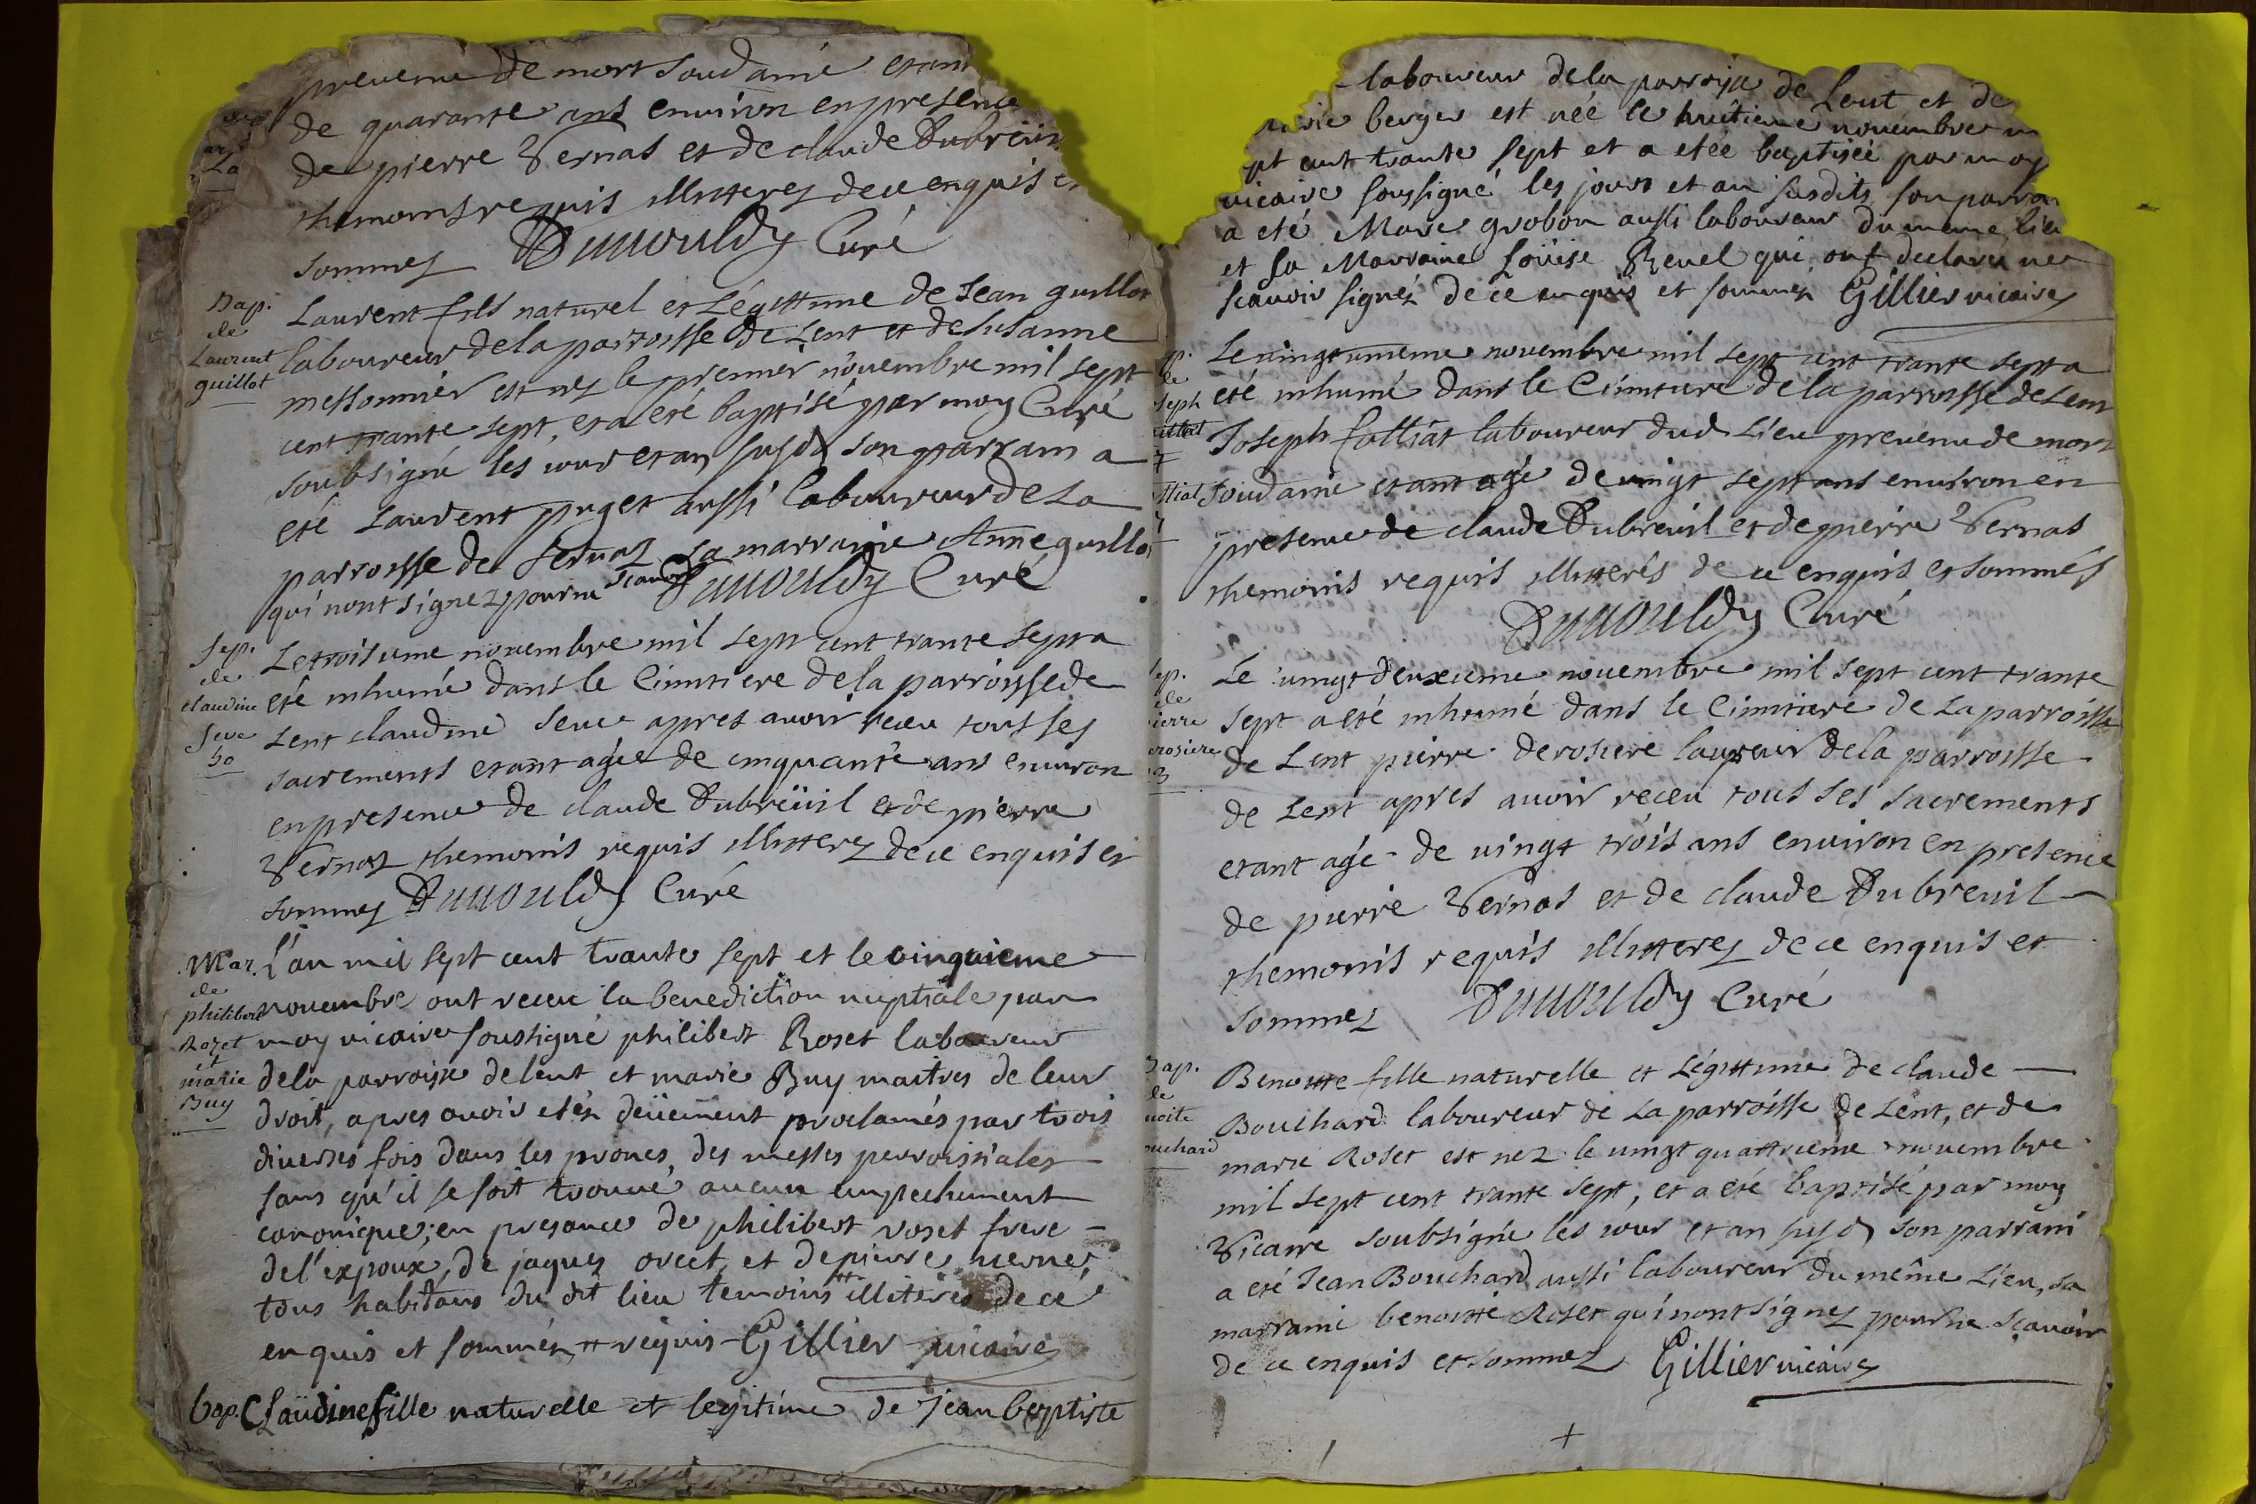 prevenu de mort soudaine etant
de quarante ans environ en presence
de pierre Vernas et de claude Dubreüil
themoins requis illitterez de ce enquis et
sommez Dunouldy Curé
Bap.
de
Laurent
guillot
Laurent fils naturel et Légittime de Jean guillot
laboureur de la parroisse de Lent et de Susanne
messonnier est nez le premier novembre mil sept
cent trante sept, et a eté baptisé par moy Curé
soubsigné les jour et an susd son parrain a
eté Laurent puget aussi laboureur de La
parroisse de Servaz sa marraine Anne guillot
qui n'ont signez pour ne scavoir Dunouldy Curé
Sep.
de
claudine
Seve
50
Le troisieme novembre mil sept cent trante sept a
eté inhumé dans le Cimitiere de la parroisse de
Lent claudine Seve apres avoir receu tous ses
sacrements etant agée de cinquante ans environ
en presence de claude Dubreüil et de pierre
Vernaz themoins requis illitterez de ce enquis et
sommez Dunouldy Curé
Mar.
de
philibert
Rozet
et
marie
Buy
L'an mil sept cent trante sept et le cinquieme
novembre ont receu la benediction nuptiale par
moy vicaire soussigné philibert Roset laboureur
de la parroisse de lent et marie Buy maitres de leur
droit, apres avoir etéz deüement proclamés par trois
diverses fois dans les prones des messes parroissiales
sans qu'il se soit trouvé aucun empechement
canonique; en presance de philibert roset frere
de l'expoux, de jaques ovcet, et de pierre verne
tous habitans du dit lieu temoins illiteres de ce
enquis et sommés # requis Gillier vicaire
bap. Claüdine fille naturelle et legitime de jean baptiste
laboureur de la parroisse de Lent et de
marie berger est née le huitieme novembre m
sept cent trante sept et a etée baptisée par moy
vicaire soussigné les jours et an susdits son parrain
a eté Marc grobon aussi laboureur du meme lieu
et sa Marraine Loüise Revel qui ont declaré ne
scavoir signéz de ce enquis et sommez Gillier vicaire
Le vingt unieme novembre mil sept cent trante sept a
eté inhumé dans le Cimitiere de la parroisse de Lent
Joseph falliat laboureur dud Lieu prevenu de mort
soudaine etant agé de vingt sept ans environ en
presence de claude Dubreuil et de pierre Vernas
themoins requis illitterés de ce enquis et sommés
Dunouldy Curé
Sep.
de
pierre
derosiere
23
Le vingt deuxieme novembre mil sept cent trante
sept a eté inhumé dans le Cimitiere de La parroisse
de Lent pierre derosiere laupreur de la parroisse
de Lent apres avoir receu tous ses sacrements
etant agé de vingt trois ans environ en presence
de pierre Vernas et de claude Dubreuil
themoins requis illitterez de ce enquis et
sommez Dunouldy Curé
Bap.
de
noite
ouchard
Benoitte fille naturelle et Légittime de claude
Bouchard laboureur de La parroisse de Lent, et de
marie Roset est nez le vingt quattrieme novembre
mil sept cent trante sept, et a eté baptisé par moy
Vicaire soubsigné les jour et an susd son parrain
a eté Jean Bouchard aussi laboureur du même Lieu, sa
marraine benoitte Roset qui n'ont signez pour ne sçavoir
de ce enquis et sommez Gillier vicaire